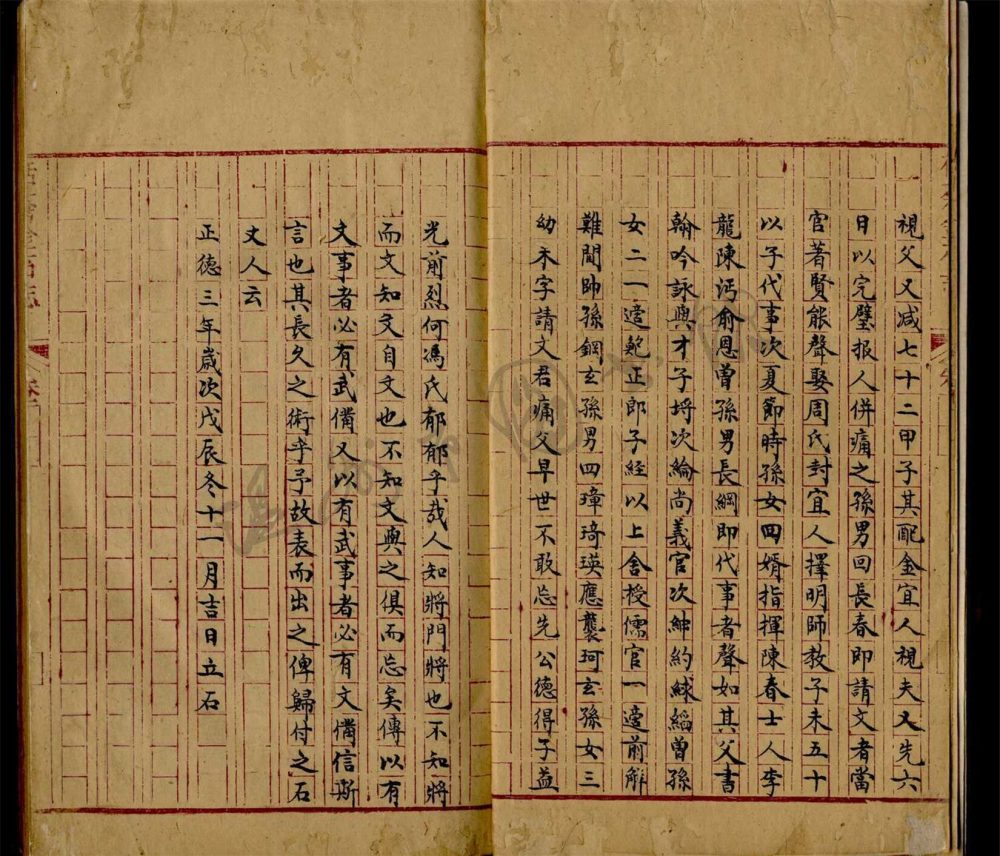 視父又减七十二甲子其配金宜人視夫又先六
日以完璧报人併痛之孫男回長春即請文者當
官著賢能聲娶周氏封宜人擇明師教子未五十
以子代事次夏節時孫女四婿指揮陳春士人李
龍陳沔俞恩曾孫男長綱即代事者聲如其父書
翰吟詠與才子埒次綸尚義官次紳約絿緇曾孫
女二一適鮑正郎子經以上舍授儒官一適前解
難間帥孫鋼玄孫男四璋琦瑛應襲珂玄孫女三
幼未字請文君痛父早世不敢忘先公德得子益
光前烈何馮氏郁郁乎哉人知將門將也不知將
而文知文自文也不知文與之俱而忘矣傳以有
文事者必有武備又以有武事者必有文備信斯
言也其長久之術乎予故表而出之俾歸付之石
丈人云
正德三年歲次戊辰冬十一月吉日立石